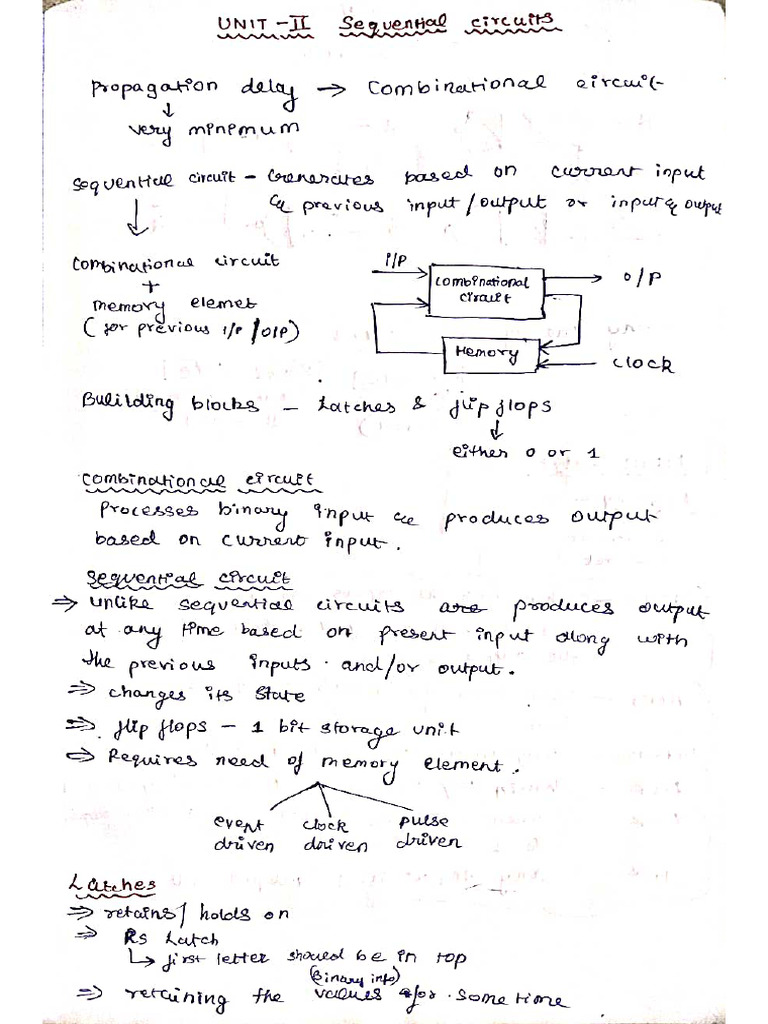 UNIT-II Sequential circuits
Propagation delay → Combinational circuit
↓
very minimum
Sequential circuit - Generates based on current input
& previous input/output or input & output
↓
Combinational circuit
+
memory elemet
(for previous I/P /O/P)
I/P
Combinational
circuit
O/P
Memory
clock
Buliilding blocks - Latches & flip flops
↓
either 0 or 1
Combinational circuit
Processes binary input & produces output
based on current input.
Sequential circuit
⇒ unlike sequential circuits are produces output
at any time based on present input along with
the previous inputs and/or output.
⇒ changes its state
⇒ flip flops - 1 bit storage unit
⇒ Requires need of memory element.
event clock pulse
driven driven driven
Latches
⇒ retains/ holds on
⇒ RS Latch
↳ first letter should be in top
(Binary info)
⇒ retaining the values for some time